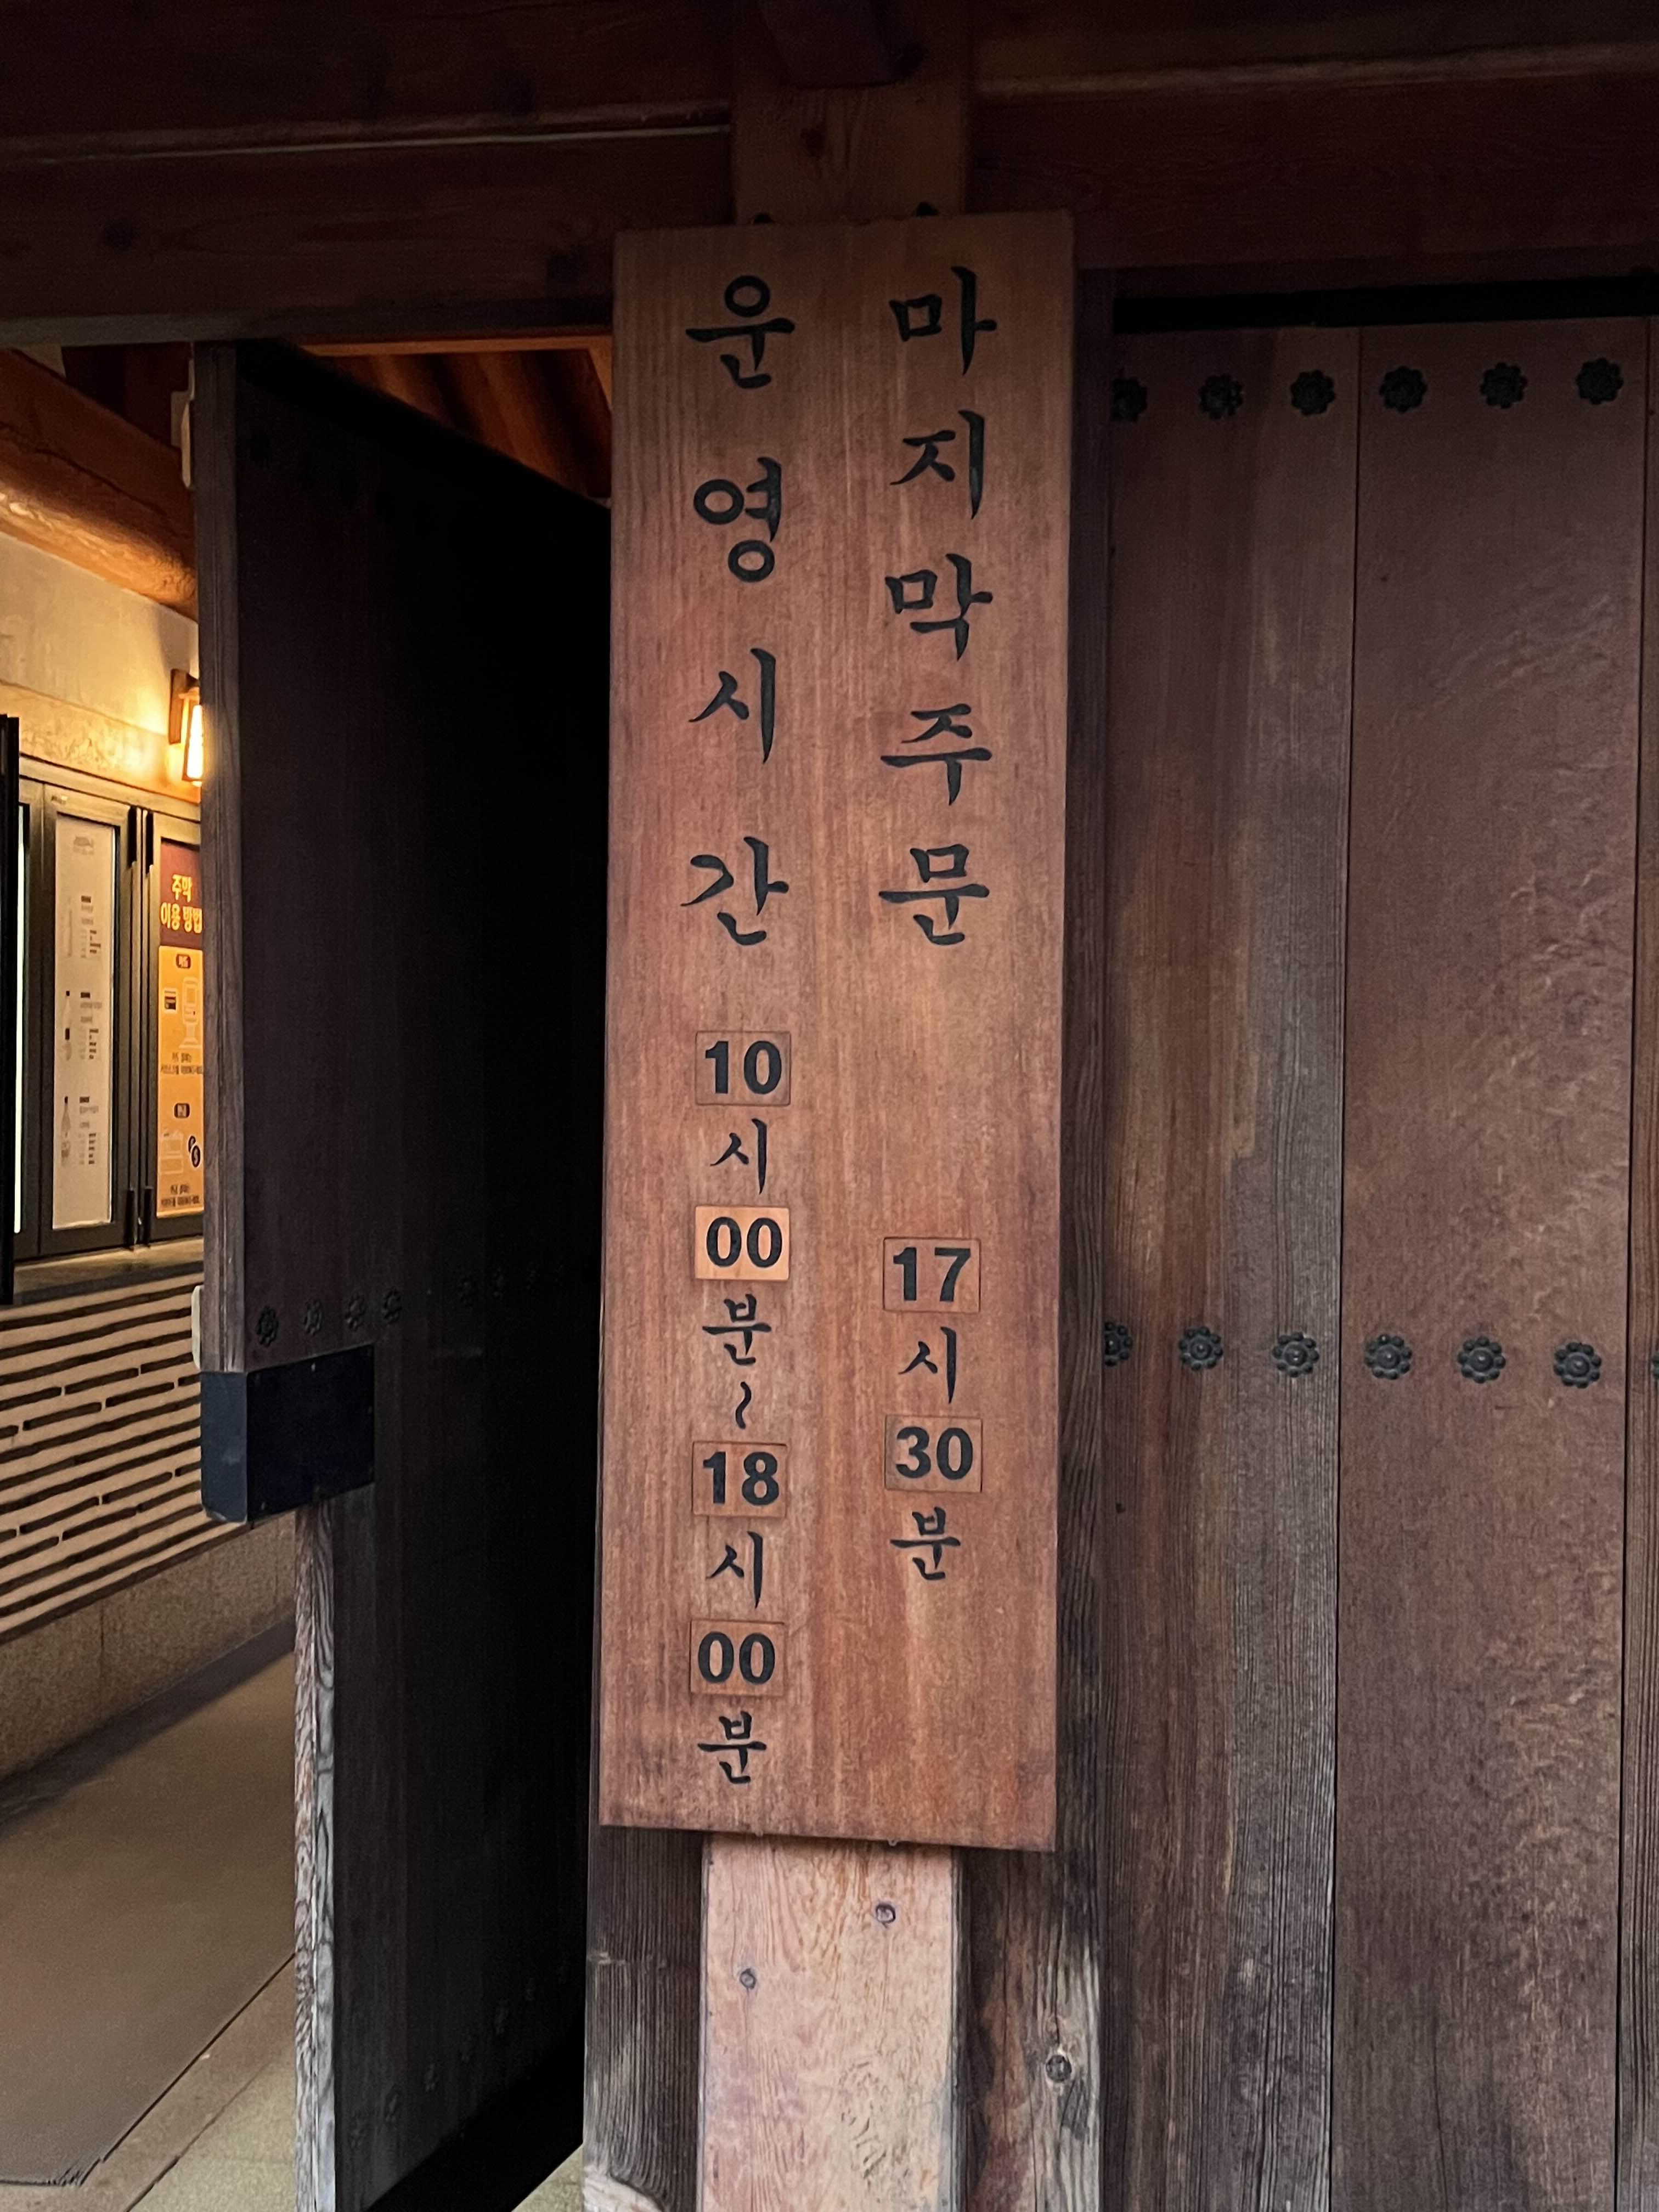 운영시간 10시 00분~18시 00분
마지막주문 17시 30분
주막
이용 방법